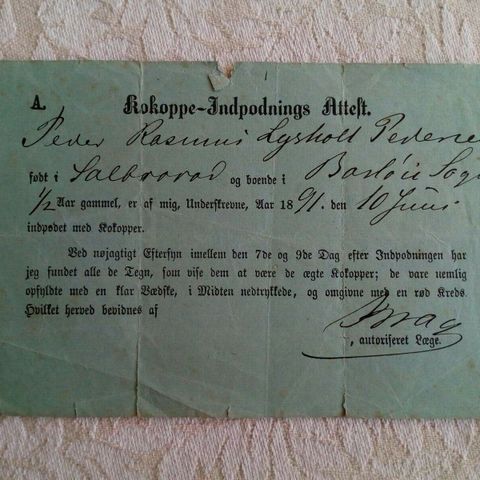 A. Kokoppe-Indpodnings Attest.
Peder Rasmus Lysholt Pederse
født i Salbrovad og boende i Barløse Sogn
1/2 Aar gammel, er af mig, Underskrevne, Aar 1891. den 10 Juni
indpodet med Kokopper.
Ved nøjagtigt Eftersyn imellem den 7de og 9de Dag efter Indpodningen har
jeg fundet alle de Tegn, som vise dem at være de ægte Kokopper; de vare nemlig
opfyldte med en klar Vædske, i Midten nedtrykkede, og omgivne med en rød Kreds.
Hvilket herved bevidnes af
, autoriseret Læge.